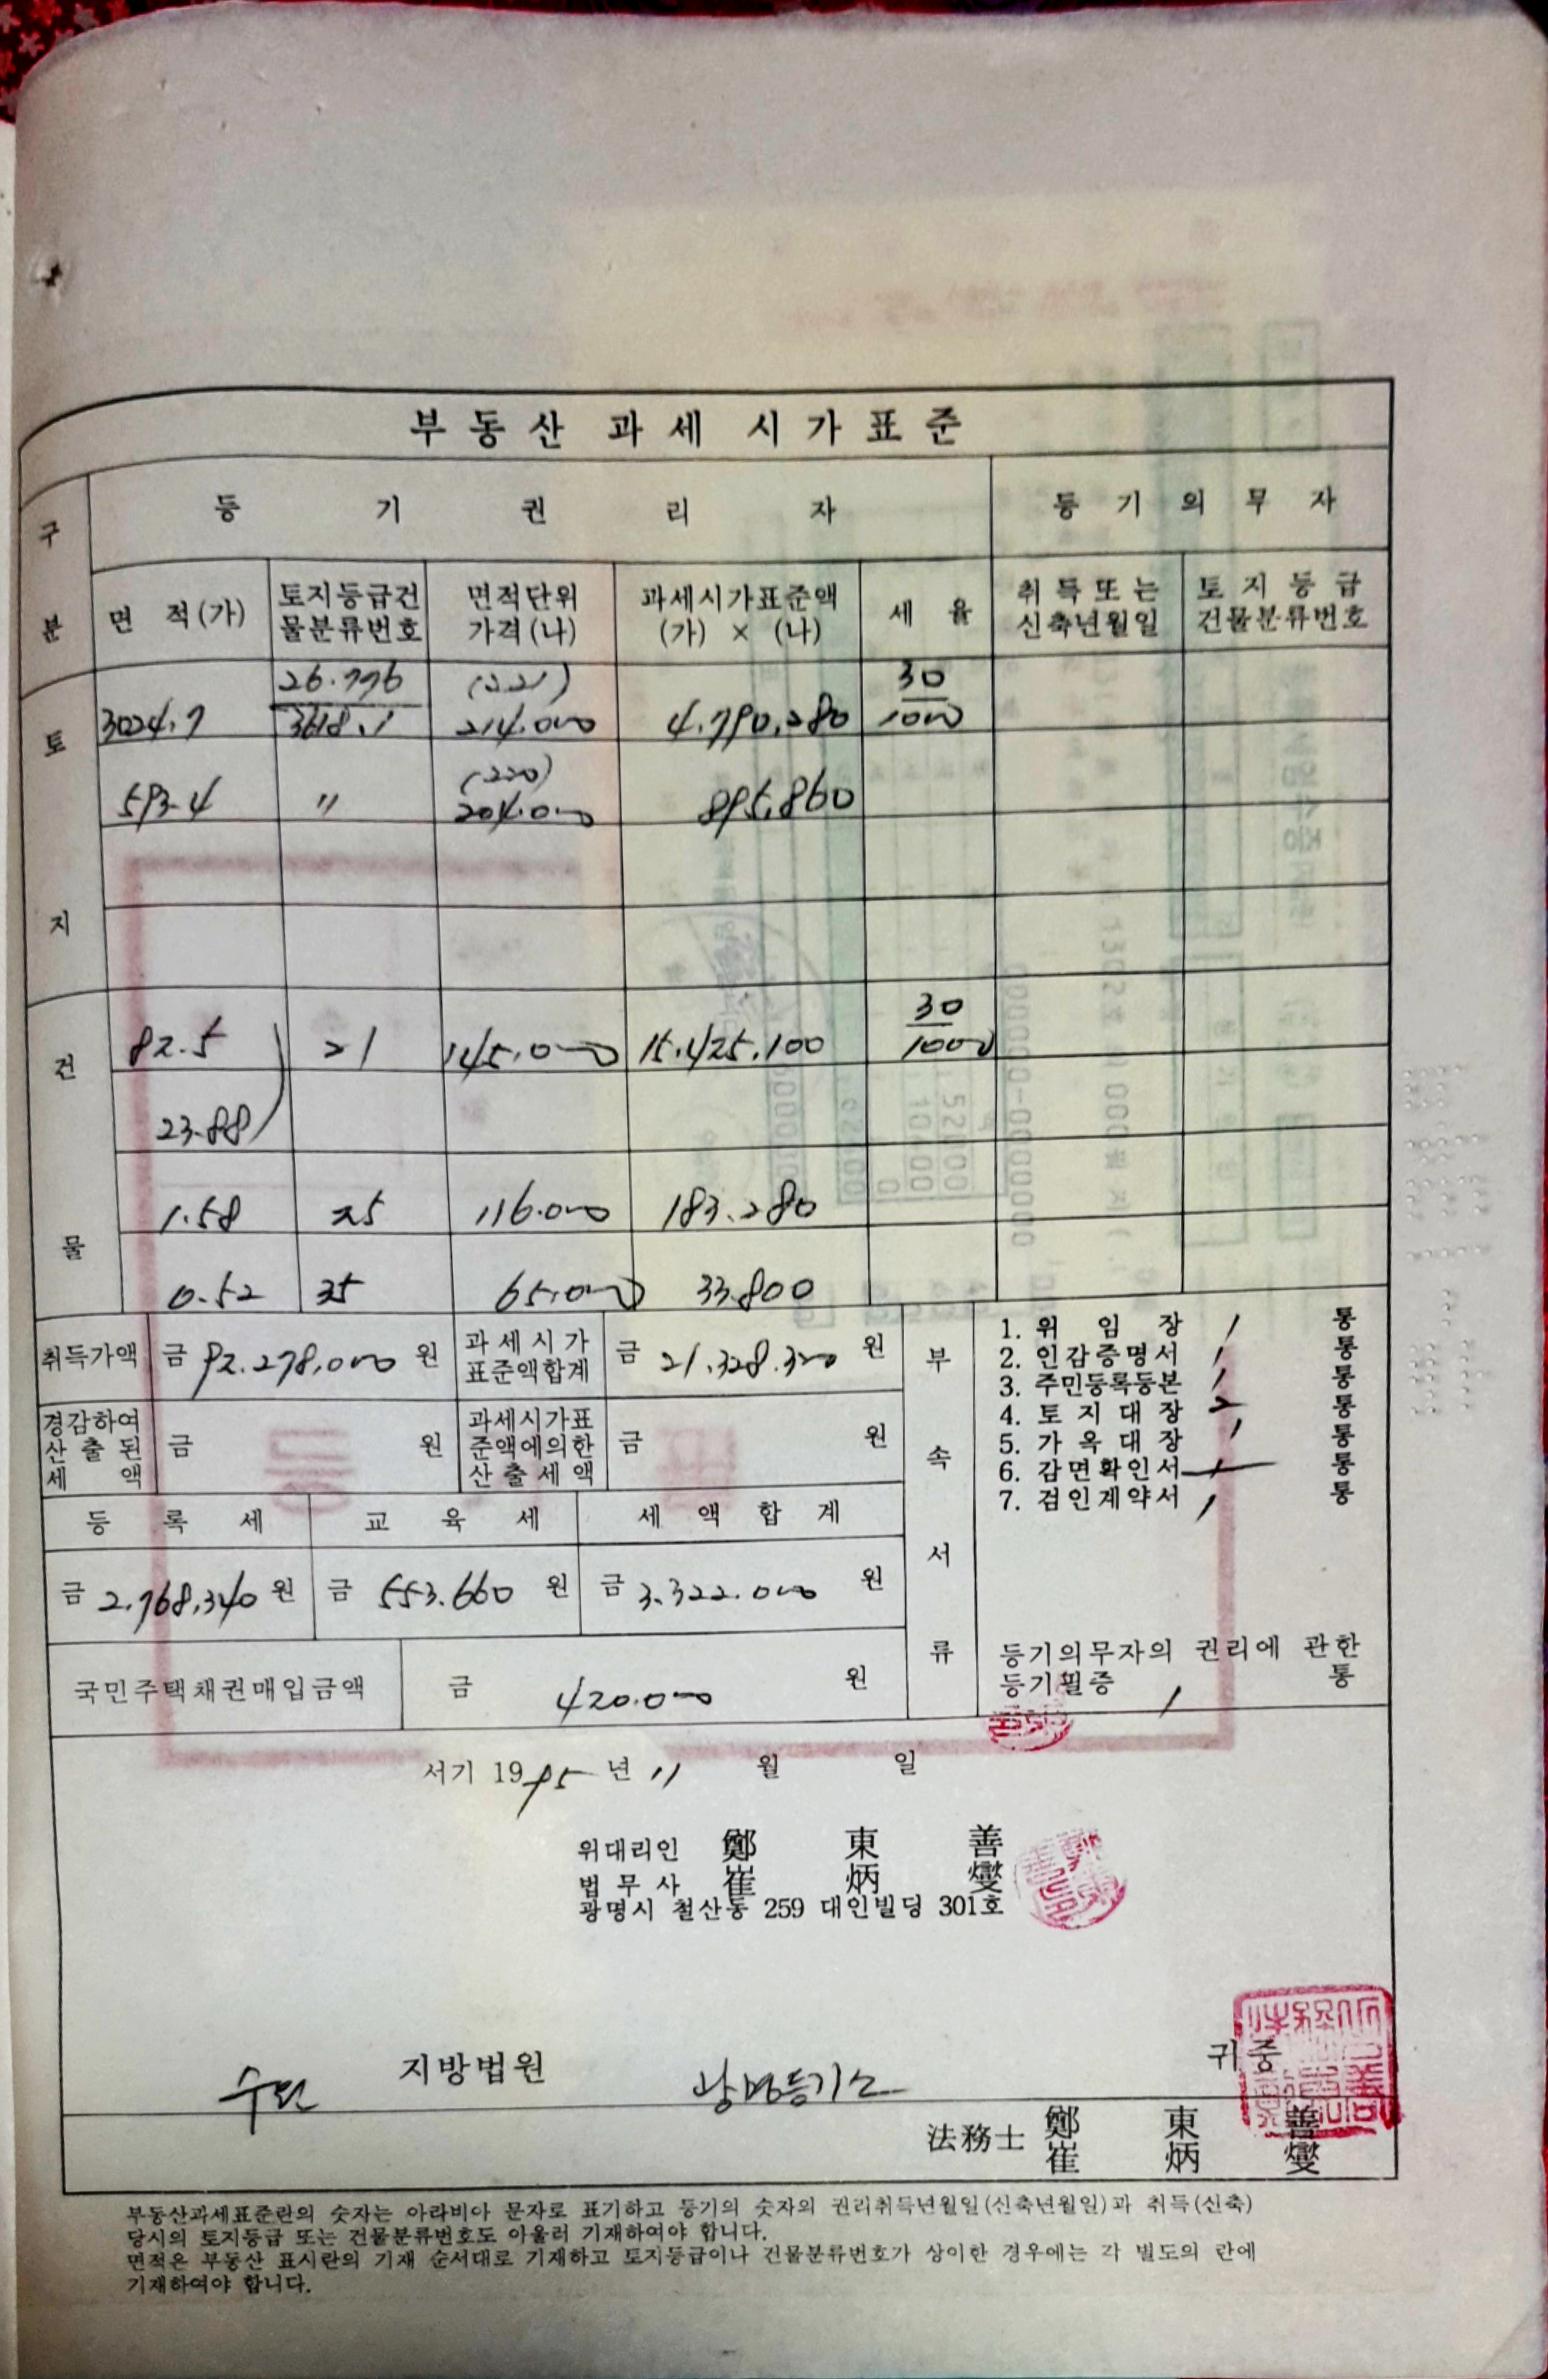 부동산 과세 시가표준
구분
등기권리자
등기의무자
면 적(가)
토지등급건물분류번호
면적단위가격(나)
과세시가표준액(가) × (나)
세 율
취득또는신축년월일
토지등급건물분류번호
토지
3024.7 26.776/3618.1 (221) 214.000 4.790.280 30/1000
593.4 〃 (220) 204.000 895.860
건물
82.5 21 145.000 15.425.100 30/1000
23.88
1.58 25 116.000 183.280
0.52 35 65.000 33.800
취득가액 금 92.278.000 원
과세시가표준액합계 금 21.328.320 원
경감하여산출된세액 금 원
과세시가표준액에의한산출세액 금 원
등록세 교육세 세액합계
금 2.768.340 원 금 553.660 원 금 3.322.000 원
국민주택채권매입금액 금 420.000 원
부속서류
1. 위 임 장 1 통
2. 인감증명서 1 통
3. 주민등록등본 1 통
4. 토지대장 2 통
5. 가옥대장 1 통
6. 감면확인서 통
7. 검인계약서 1 통
등기의무자의 권리에 관한
등기필증 1 통
서기 1995 년 11 월 일
위대리인 鄭東善
법무사 崔炳燮
광명시 철산동 259 대인빌딩 301호
수원 지방법원 광명등기소 귀중
法務士 鄭東善
崔炳燮
부동산과세표준란의 숫자는 아라비아 문자로 표기하고 등기의 숫자의 권리취득년월일(신축년월일)과 취득(신축)
당시의 토지등급 또는 건물분류번호도 아울러 기재하여야 합니다.
면적은 부동산 표시란의 기재 순서대로 기재하고 토지등급이나 건물분류번호가 상이한 경우에는 각 별도의 란에
기재하여야 합니다.